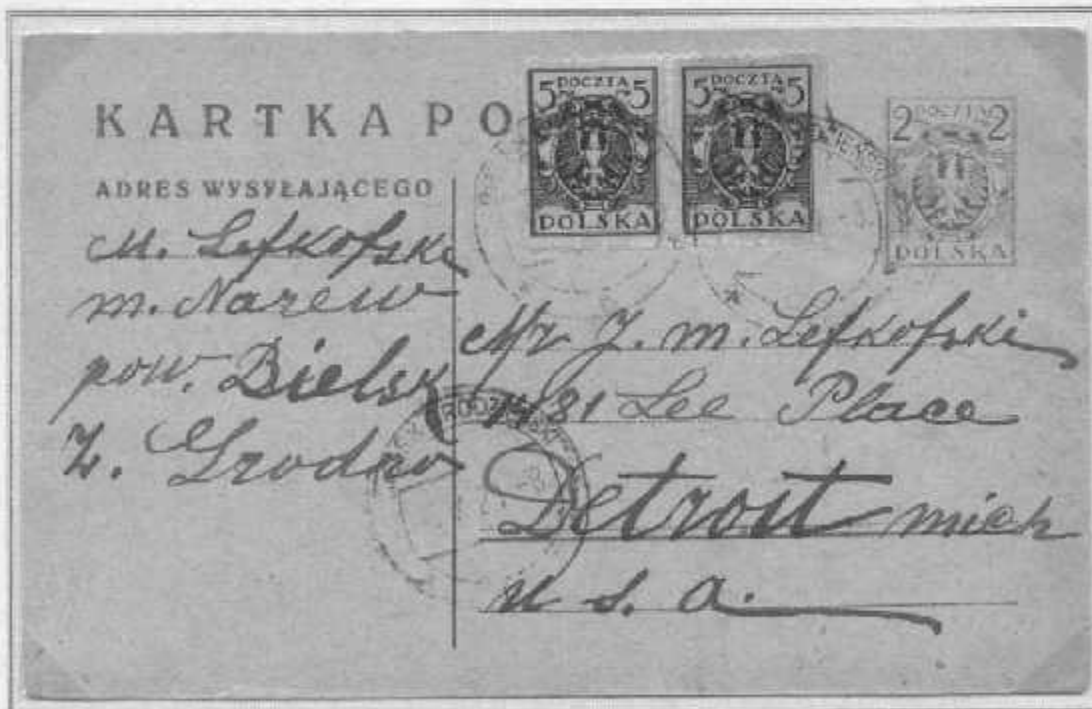 KARTKA PO
5 POCZTA 5
POLSKA
5 POCZTA 5
POLSKA
2 POCZTA 2
POLSKA
ADRES WYSYŁAJĄCEGO
M. Lefkofski
m. Narew
pow. Bielsk
Z. Grodno
Mr J. M. Lefkofski
1481 Lee Place
Detroit mich
U. S. A.